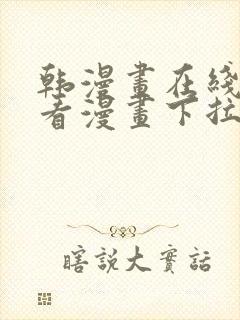 韩漫畫在綫
看漫畫下拉
瞎說大實話